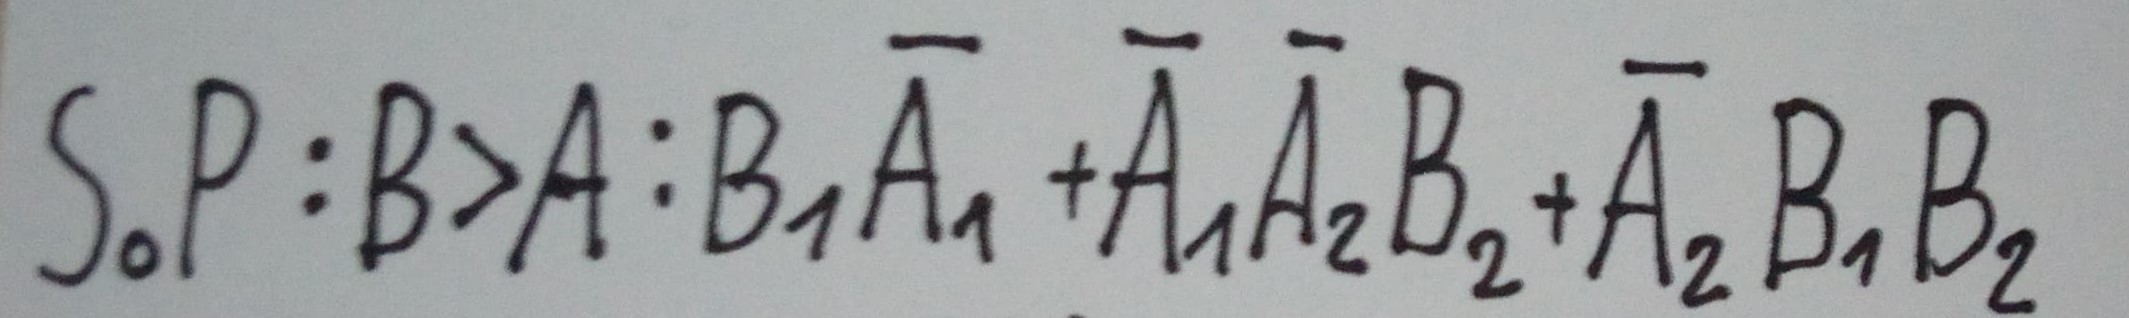 SₒP : B>A : B₁A̅₁ + A̅₁A̅₂B₂ + A̅₂B₁B₂